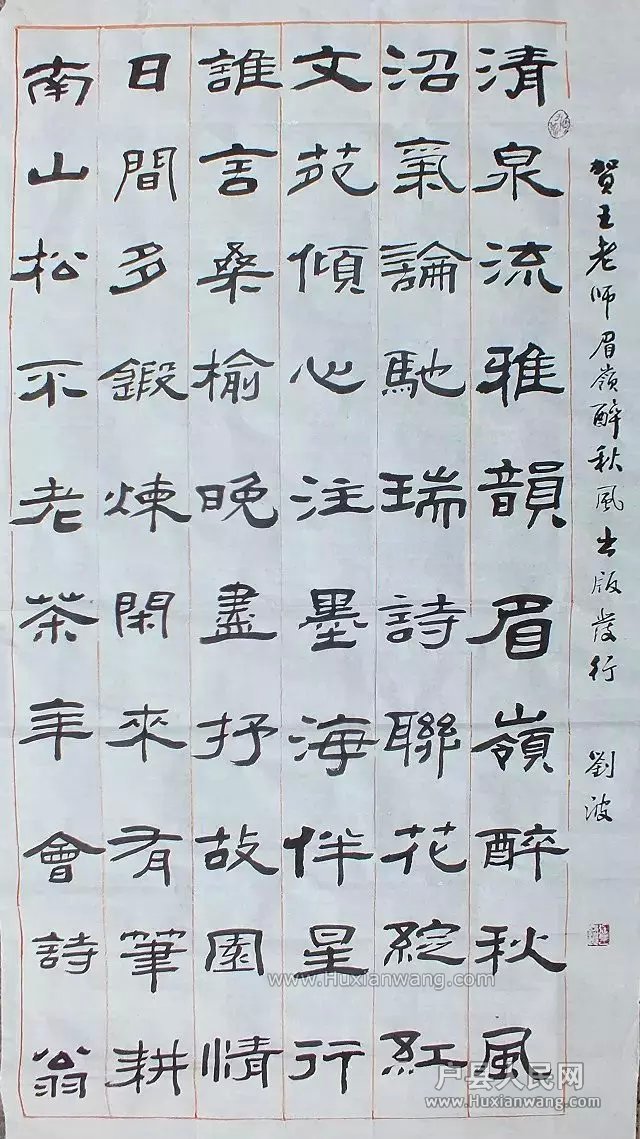 賀王老师眉嶺醉秋風出版發行 劉波
清泉流雅韻眉嶺醉秋風
沼氣論馳瑞詩聯花綻紅
文苑傾心注墨海伴星行
誰言桑榆晚盡抒故園情
日間多鍛煉閑來有筆耕
南山松不老茶年會詩翁
www.Huxianwang.com
户县人民网
www.Huxianwang.com